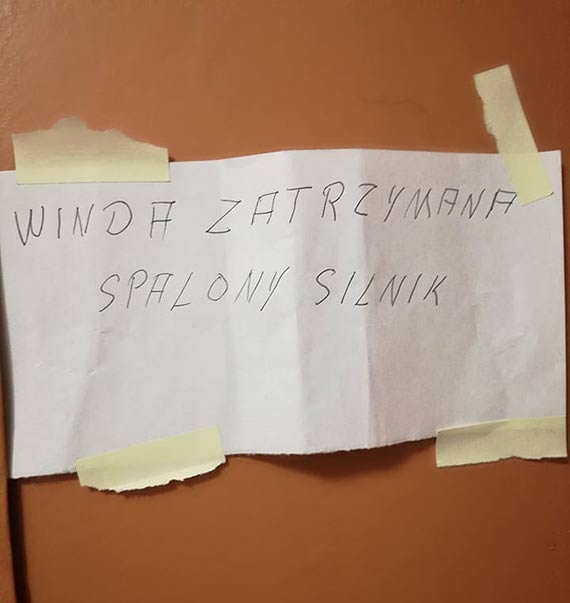 WINDA ZATRZYMANA
SPALONY SILNIK